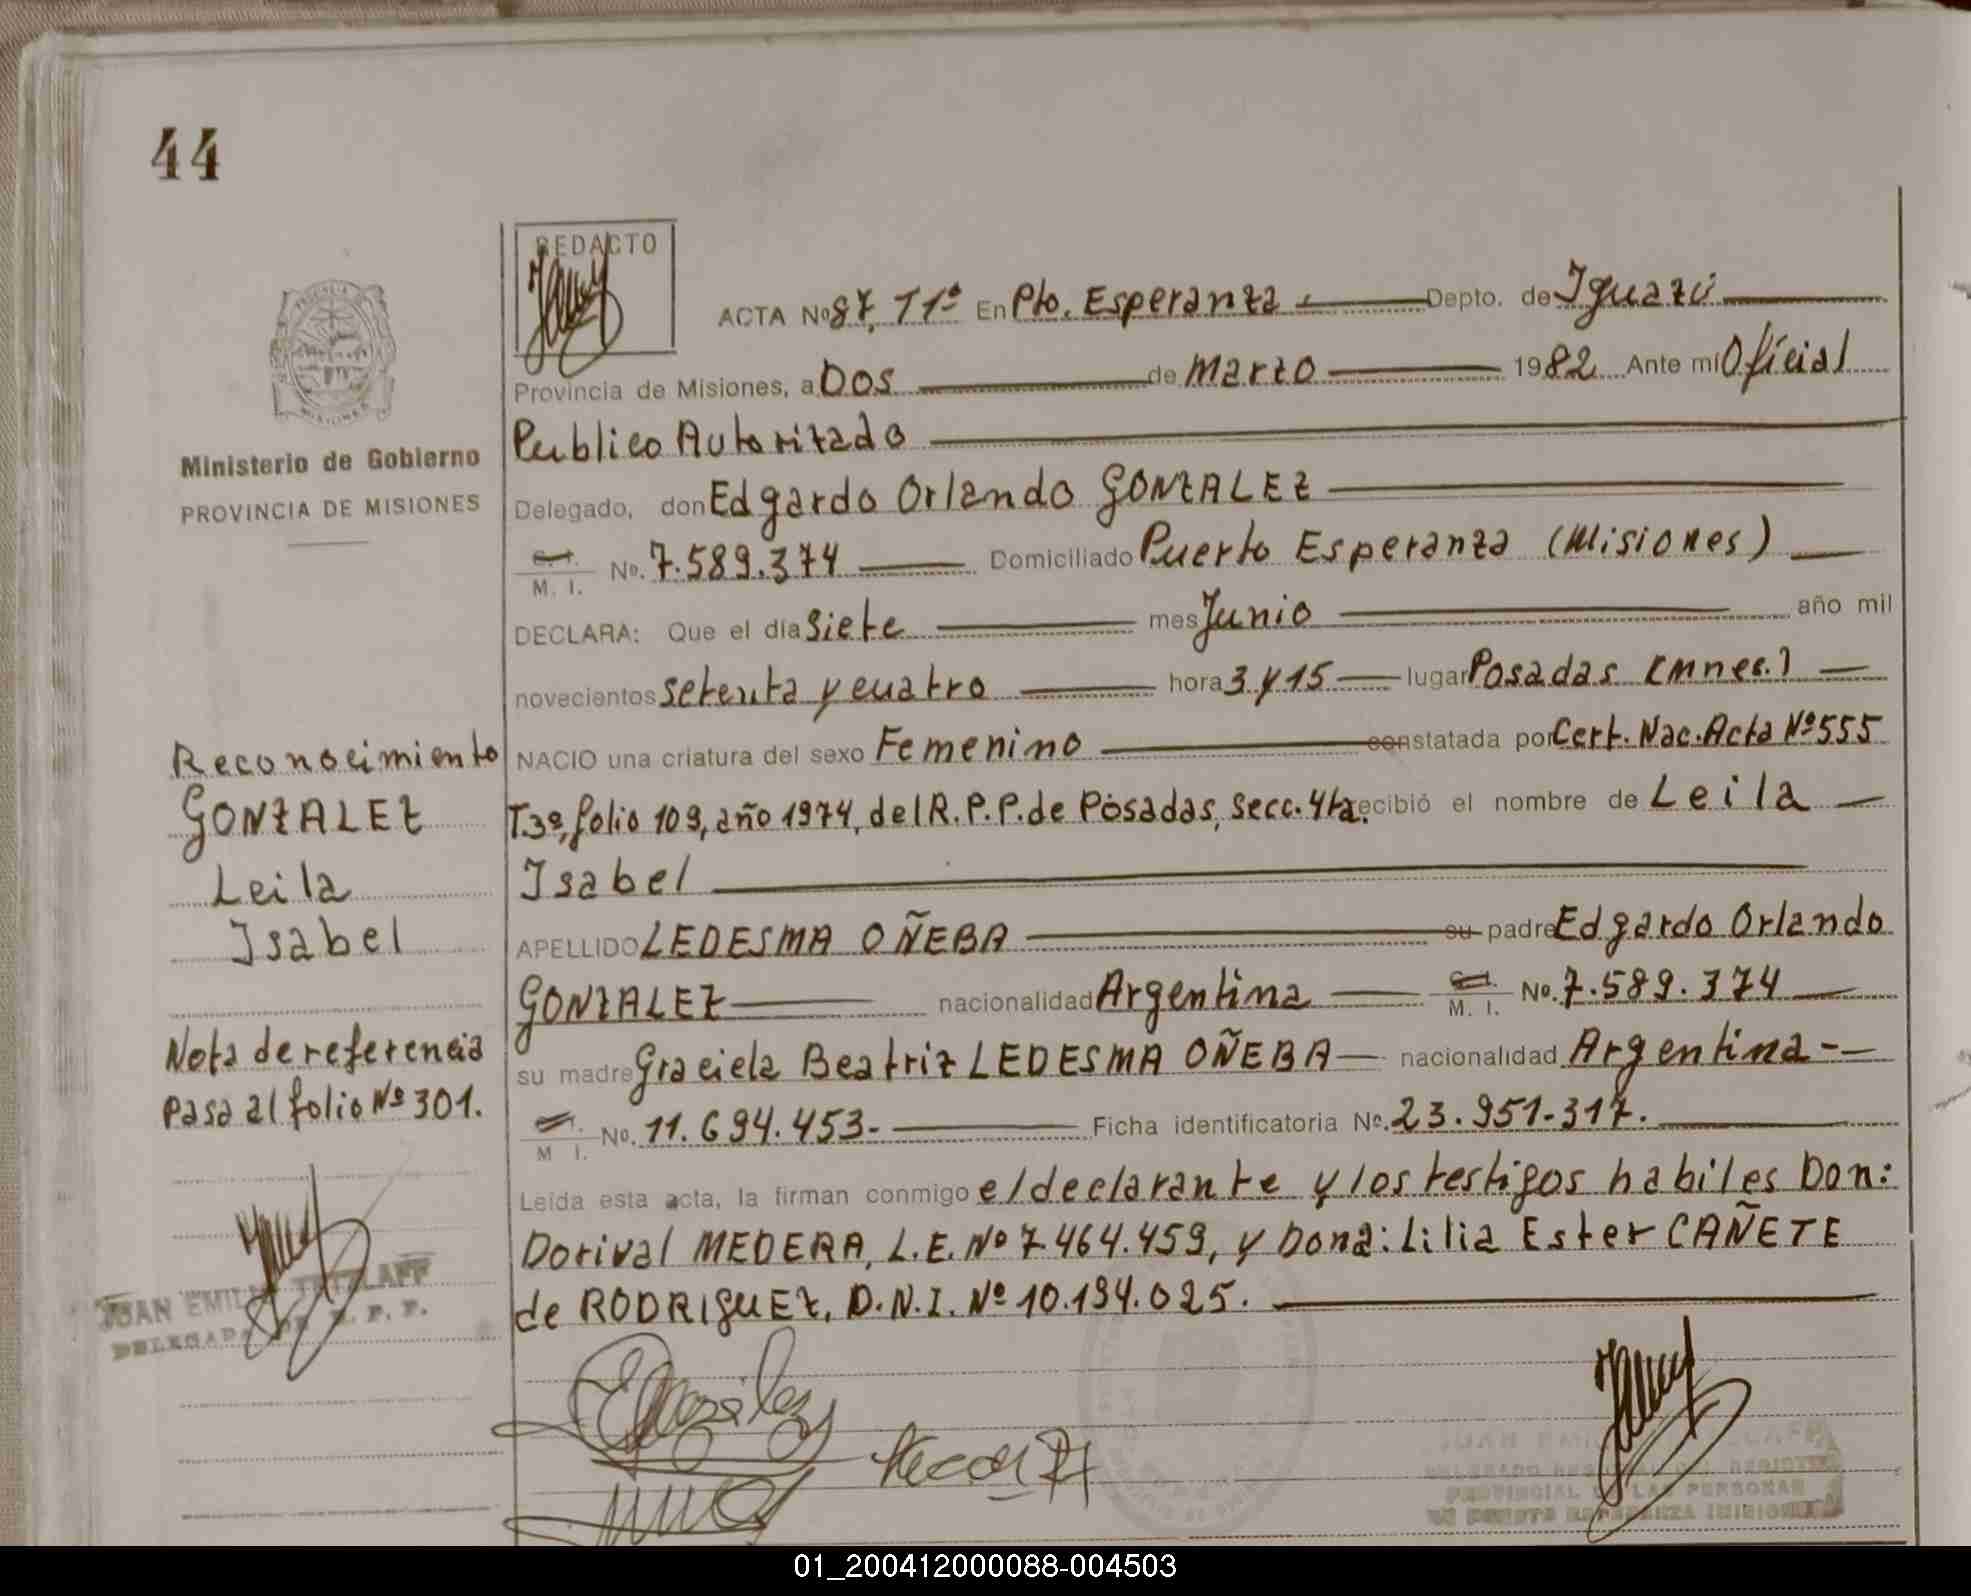 44
REDACTO
ACTA Nº 87, T1º En Pto. Esperanza Depto. de Iguazú
Provincia de Misiones, a Dos de Marzo 1982 Ante mí Oficial
Publico Autorizado
Delegado, don Edgardo Orlando GONZALEZ
M. I. Nº. 7.589.374 Domiciliado Puerto Esperanza (Misiones)
DECLARA: Que el día Siete mes Junio año mil
novecientos setenta y cuatro hora 3 y 15 lugar Posadas (Mnes.)
NACIO una criatura del sexo Femenino constatada por Cert. Nac. Acta Nº 555
T.3º, folio 109, año 1974, del R.P.P. de Posadas, Secc. 4ta. recibió el nombre de Leila
Isabel
APELLIDO LEDESMA OÑEBA su padre Edgardo Orlando
GONZALEZ nacionalidad Argentina M. I. Nº. 7.589.374
su madre Graciela Beatriz LEDESMA OÑEBA nacionalidad Argentina
M I. Nº. 11.694.453. Ficha identificatoria Nº. 23.951-317.
Leída esta acta, la firman conmigo el declarante y los testigos habiles Don:
Dorival MEDERA, L.E. Nº 7.464.459, y Dona: Lilia Ester CAÑETE
de RODRIGUEZ, D.N.I. Nº 10.194.025.
Ministerio de Gobierno
PROVINCIA DE MISIONES
Reconocimiento
GONZALEZ
Leila
Isabel
Nota de referencia
Pasa al folio Nº 301.
JUAN EMILIO TRITZLAFF
01_200412000088-004503